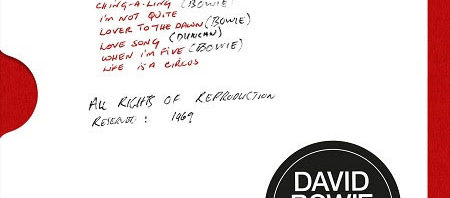 CHING-A-LING (BOWIE)
I'M NOT QUITE
LOVER TO THE DAWN (BOWIE)
LOVE SONG (DUNCAN)
WHEN I'M FIVE (BOWIE)
LIFE IS A CIRCUS
ALL RIGHTS OF REPRODUCTION
RESERVED: 1969
DAVID
BOWIE